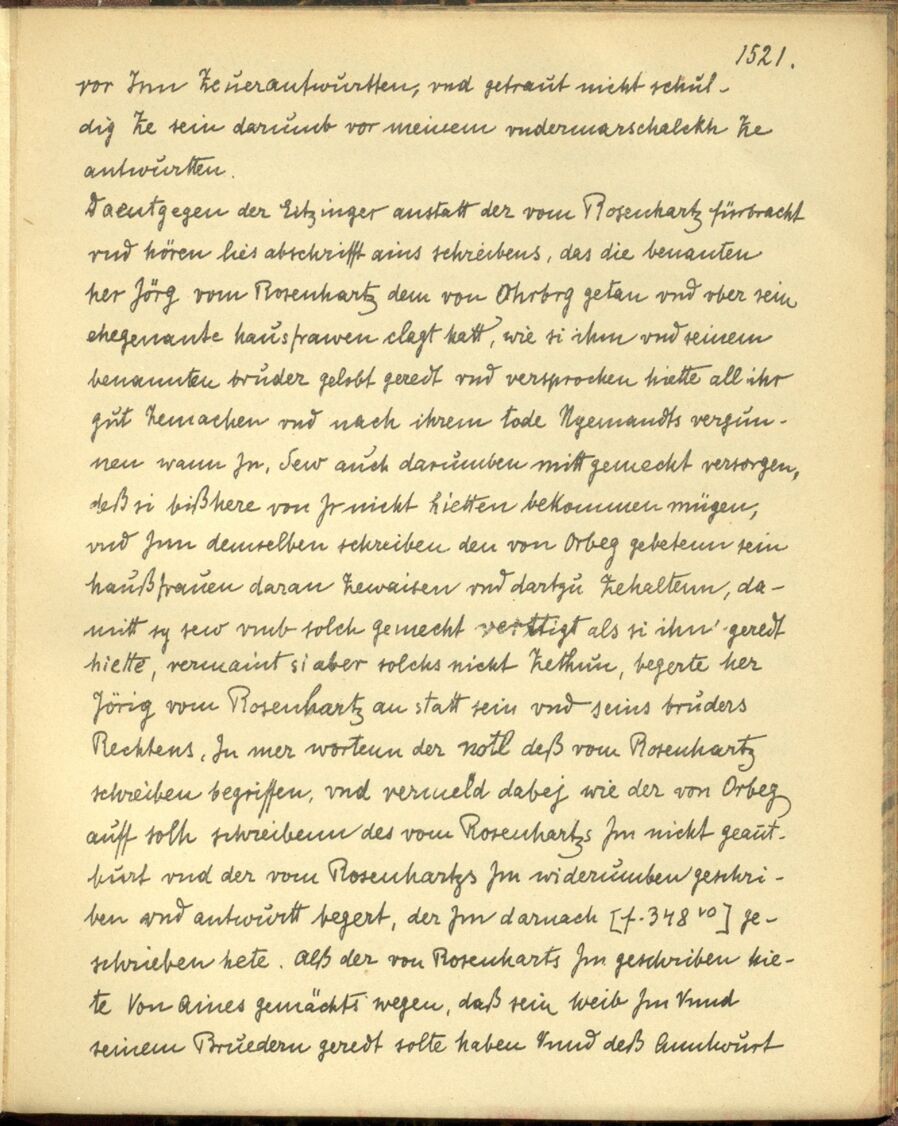 1521.
vor Inn Zeuerantwurtten, vnd getraut nicht schul-
dig Ze sein darumb vor meinem vndermarschalckh Ze
antwurtten.
Daentgegen der Eitzinger anstatt der vom Rosenhartz fürbracht
vnd hören lies abschrifft ains schreibens, das die benanten
her Jörg vom Rosenhartz dem von Ohrbrg getan vnd vber sein
ehegenante hausfrawen clagt hatt, wie si ihm vnd seinem
benannten bruder gelobt geredt vnd versprochen hiette all ihr
gut Zemachen vnd nach ihrem tode Nyemandts vergun-
nen wann In, Sew auch darumben mitt gemecht versorgen,
deß si bißhere von Ir nicht hietten bekommen mügen,
vnd Inn demselben schreiben den von Orbeg gebetenn sein
haußfrauen daran Zewaisen vnd dartzu Zehaltenn, da-
mitt sy sew vmb solch gemecht verttigt als si ihn geredt
hiette, vermaint si aber solchs nicht Zethun, begerte her
Jörig vom Rosenhartz an statt sein vnd seins bruders
Rechtens, In mer wortenn der notl deß vom Rosenhartz
schreiben begriffen, vnd vermeld dabej wie der von Orbeg
auff solh schreibenn des vom Rosenhartzs Im nicht geant-
burt vnd der vom Rosenhartzs Im widerumben geschri-
ben vnd antwurtt begert, der Im darnach [f. 348 vo] ge-
schrieben hete. Alß der von Rosenharts Im geschriben hie-
te Von Aines gemächts wegen, daß sein Weib Im Vnnd
seinem Bruedern geredt solte haben Vnnd deß Anntwurt